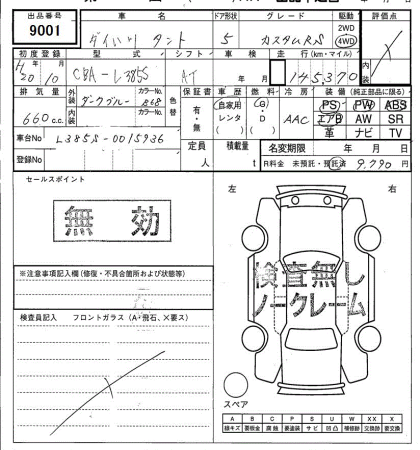 出品番号 車名 ドア形状 グレード 駆動 評価点
9001 ダイハツ タント 5 カスタムRS 2WD 4WD
内装
初度登録 型式 シフト 車検 走行(km・マイル)
H20 10 CBA-L385S AT 年 月 145370
排気量 外装 カラーNo. 色替 保証書 車歴 燃料 冷房 装備(純正部品に限る)
660c.c. ダークブルー 有・無 自家用 レンタ G・D AAC PS PW ABS
内装 カラーNo. エアB AW SR
革 ナビ TV
車台No L385S-0015936 定員 人 積載量 t 名変期限 年 月 日
登録No R料金 未預託・預託済 9,790 円
セールスポイント
無効
※注意事項記入欄(修復・不具合箇所および状態等)
検査員記入 フロントガラス(A・飛石、X要ス)
左 右
検査無し
ノークレーム
スペア
A B C P S U W XX X
線キズ 要板金 腐蝕 要塗装 サビ 凹凸 補修跡 交換跡 要交換